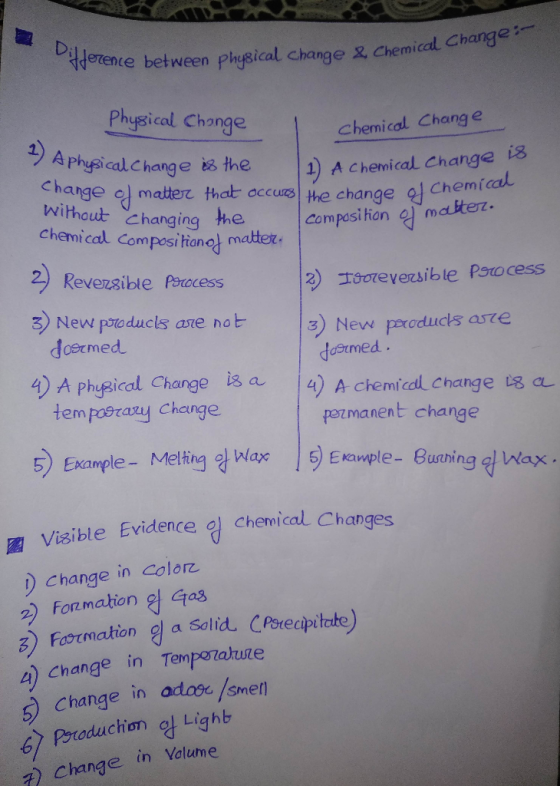 Difference between physical change & Chemical Change:-
Physical Change
1) A physical Change is the
Change of matter that occurs
Without Changing the
Chemical Composition of matter.
2) Reversible Process
3) New products are not
formed
4) A physical Change is a
temporary Change
5) Example- Melting of Wax
Chemical Change
1) A Chemical Change is
the change of Chemical
Composition of matter.
2) Irreversible Process
3) New products are
formed.
4) A chemical Change is a
permanent change
5) Example- Burning of Wax.
Visible Evidence of Chemical Changes
1) Change in Color
2) Formation of Gas
3) Formation of a Solid (Precipitate)
4) Change in Temperature
5) Change in odor/smell
6) Production of Light
7) Change in Volume